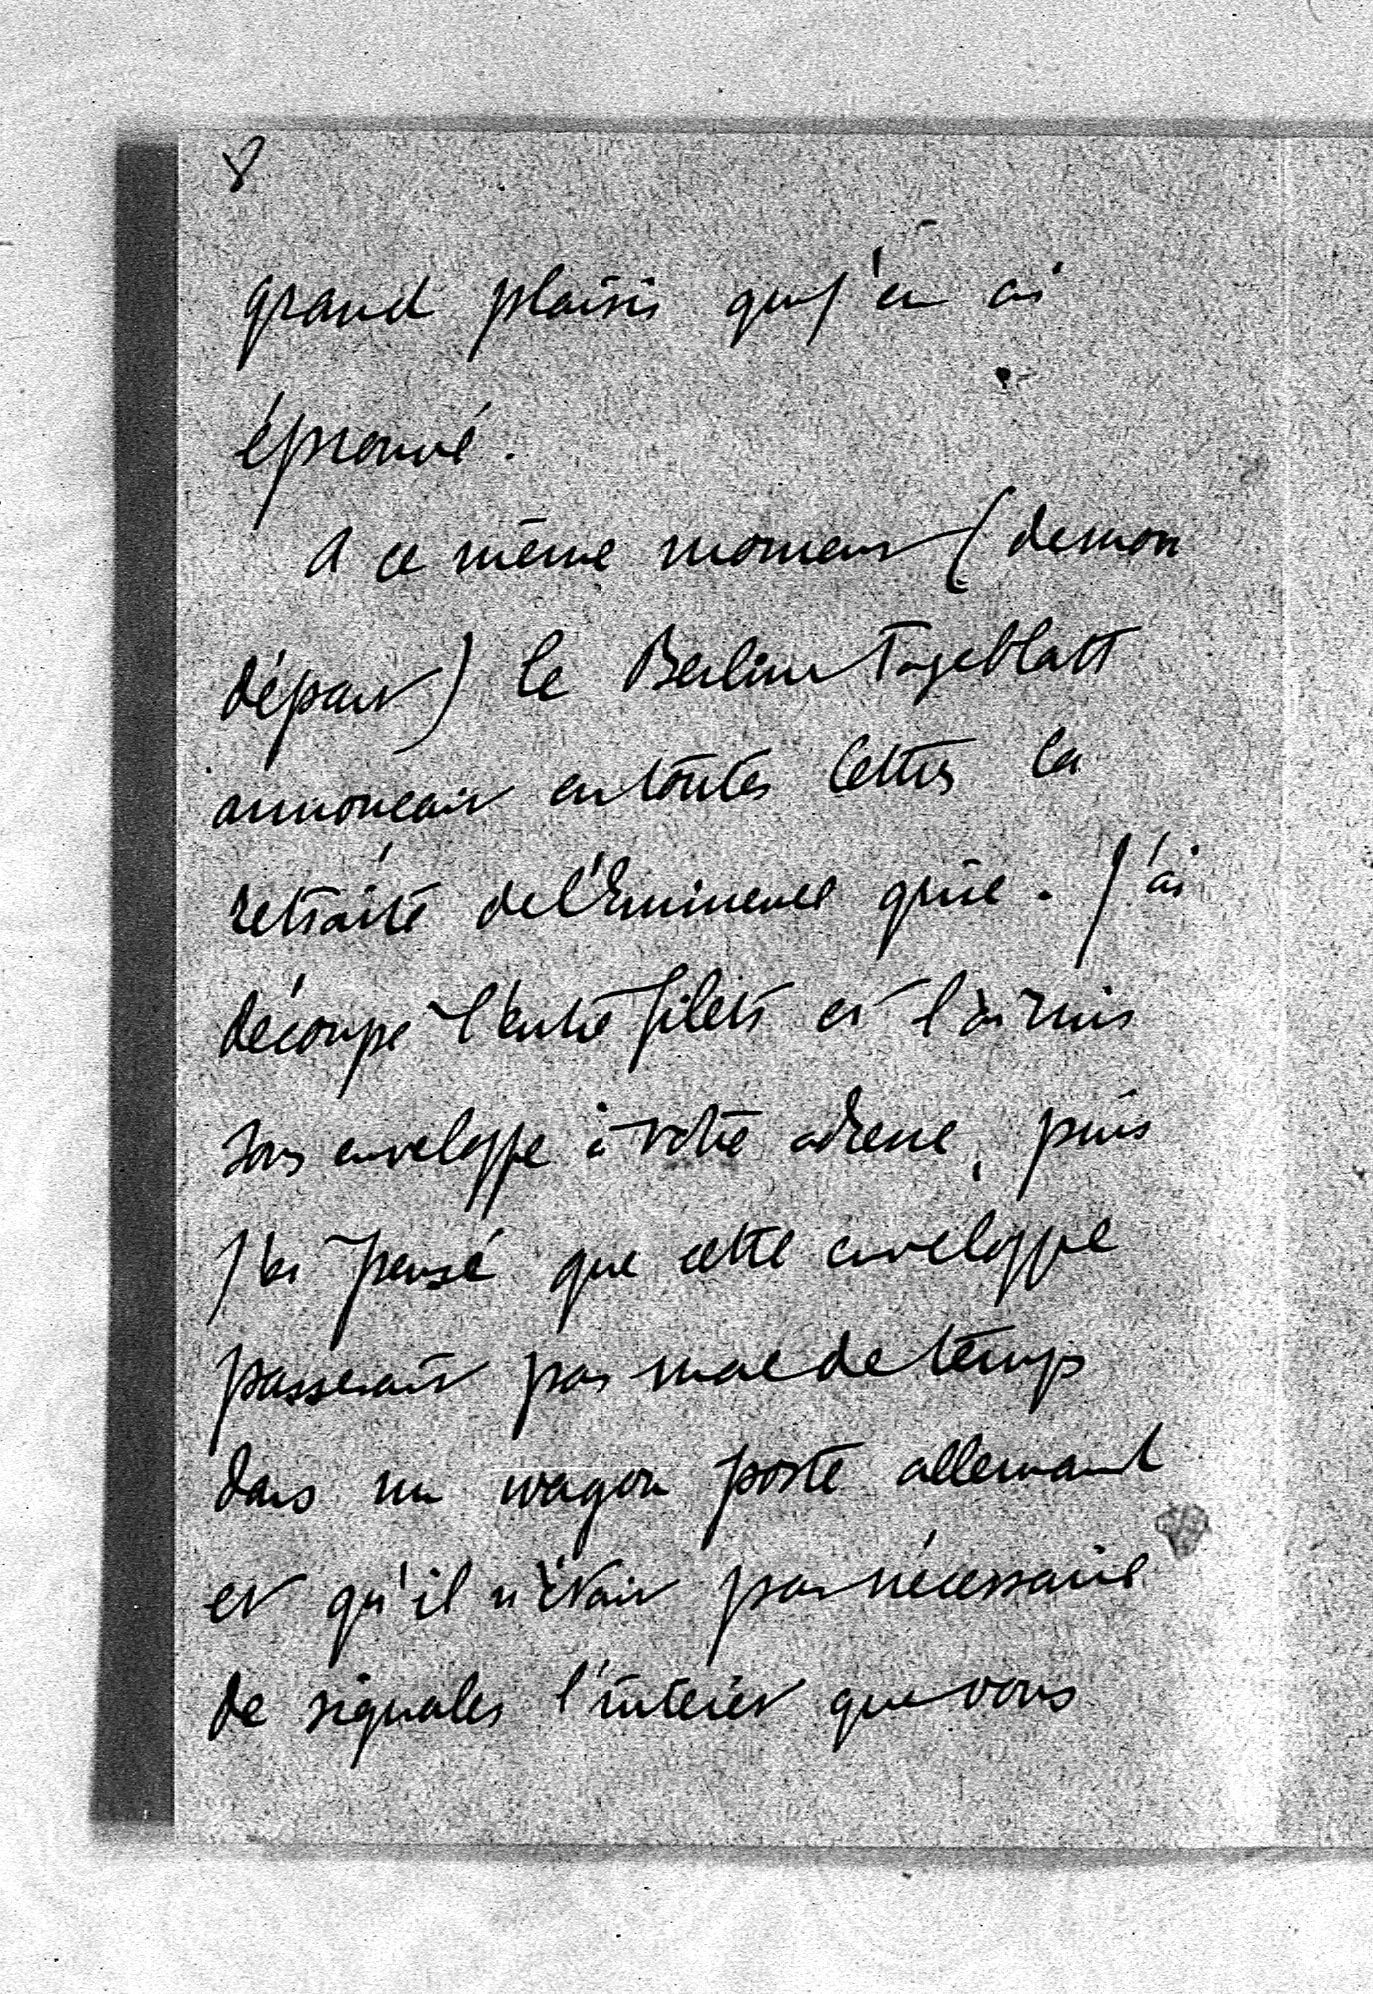 8
grand plaisir que j'en ai
éprouvé.
A ce même moment (de mon
départ) le Berliner Tageblatt
annonçait en toutes lettres la
retraite de l'Eminence grise. J'ai
découpé l'entrefilets et l'ai mis
sous enveloppe à votre adresse, puis
j'ai pensé que cette enveloppe
passerait pas mal de temps
dans un wagon poste allemand
et qu'il n'était pas nécessaire
de signaler l'intérêt que vous